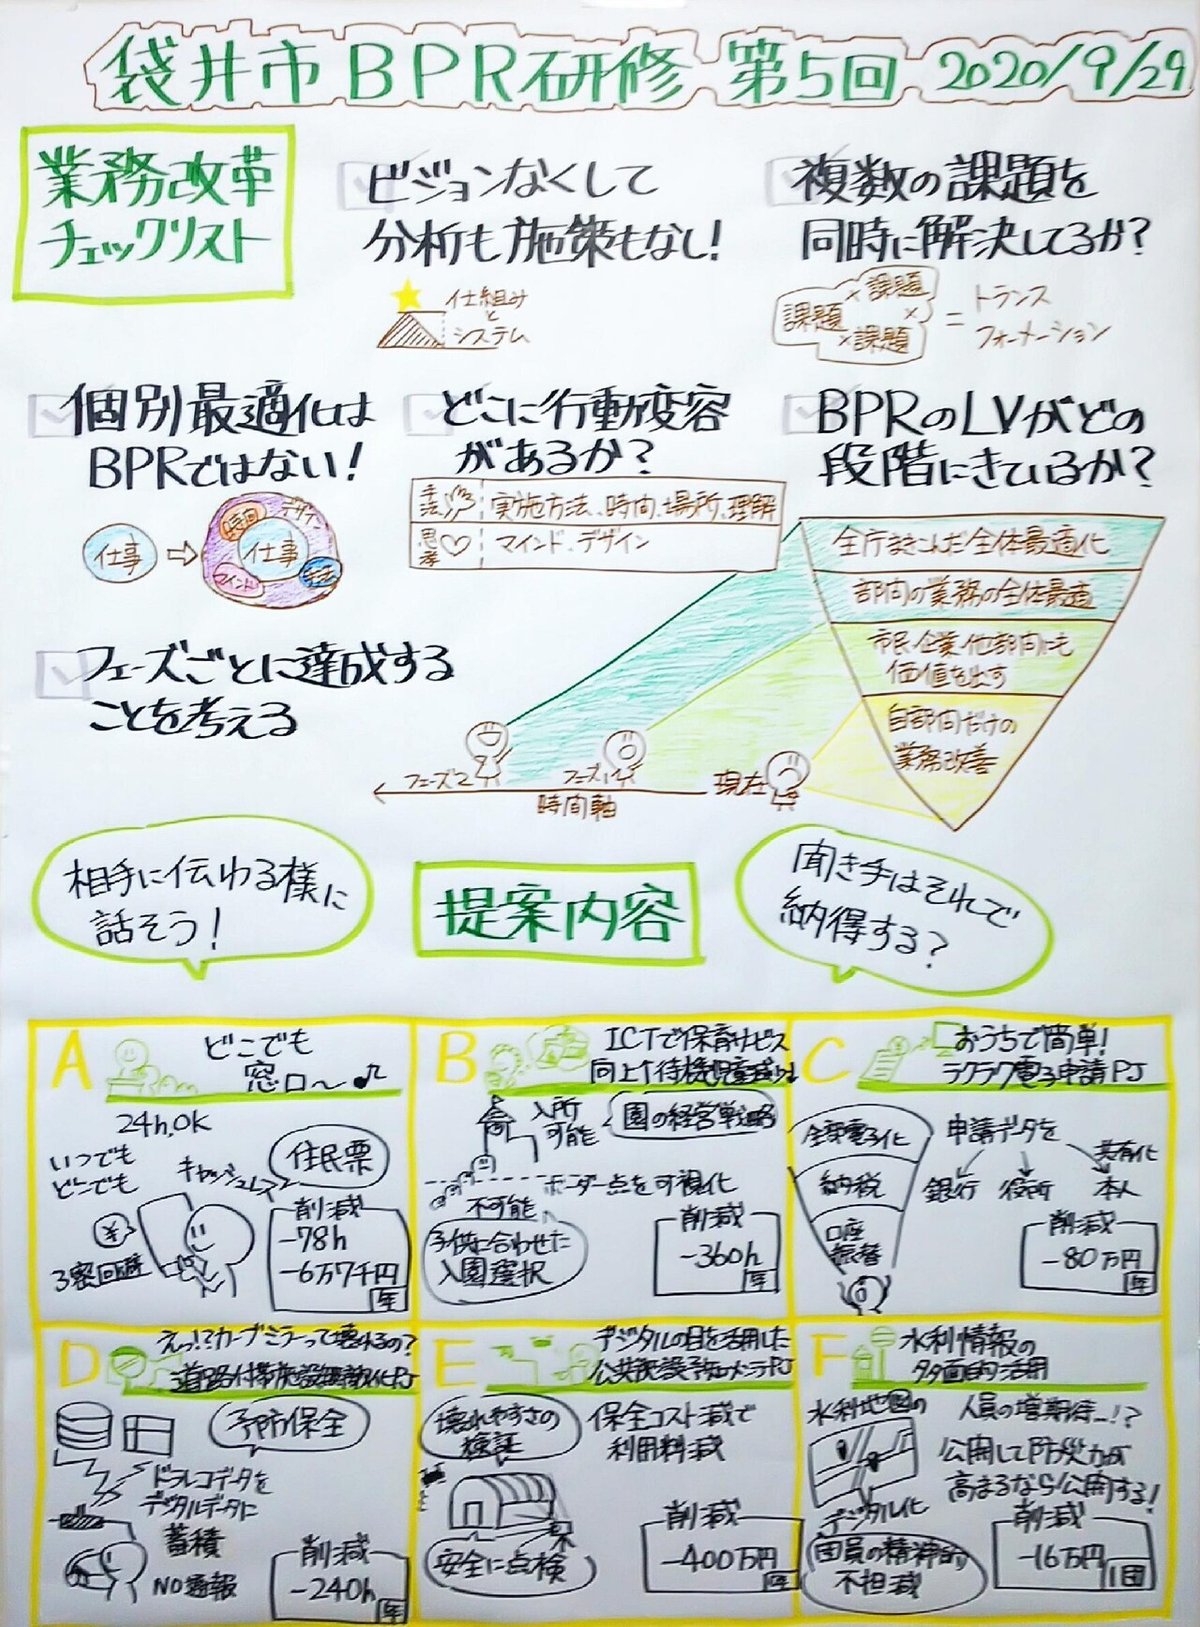 袋井市BPR研修 第5回 2020/9/29
業務改革
チェックリスト
ビジョンなくして
分析も施策もなし!
仕組み
と
システム
複数の課題を
同時に解決してるか?
課題×課題×課題
=トランス
フォーメーション
個別最適化は
BPRではない!
仕事
⇨
時間
デザイン
仕事
マインド
手法
どこに行動変容
があるか?
手法
実施方法、時間、場所、理解
思考
マインド、デザイン
BPRのLVがどの
段階にきているか?
全庁まきこんだ全体最適化
部内の業務の全体最適
市民、企業、他部内にも
価値を出す
自部内だけの
業務改善
フェーズごとに達成する
ことを考える
フェーズ2
フェーズ1
現在
時間軸
相手に伝わる様に
話そう!
提案内容
聞き手はそれで
納得する?
A
どこでも
窓口〜♪
24h,OK
いつでも
どこでも
キャッシュレス
住民票
¥
3密回避
削減
-78h
-6万7千円
年
B
ICTで保育サービス
向上↑待機児童減少↓
入所
可能
園の経営戦略
ボーダー点を可視化
不可能
子供に合わせた
入園選択
削減
-360h
年
C
おうちで簡単!
ラクラク電子申請PJ
全部電子化
納税
口座
振替
申請データを
共有化
銀行
役所
本人
削減
-80万円
年
D
えっ!?カーブミラーって壊れるの?
道路付帯施設無敵化PJ
予防保全
ドラレコデータを
デジタルデータに
蓄積
NO通報
削減
-240h
年
E
デジタルの目を活用した
公共施設予知メンテPJ
壊れやすさの
検証
保全コスト減で
利用料減
安全に点検
削減
-400万円
年
F
水利情報の
多面的活用
水利地図の
デジタル化
人員の増期待…!?
公開して防災力が
高まるなら公開する!
団員の精神的
不担減
削減
-16万円
1団